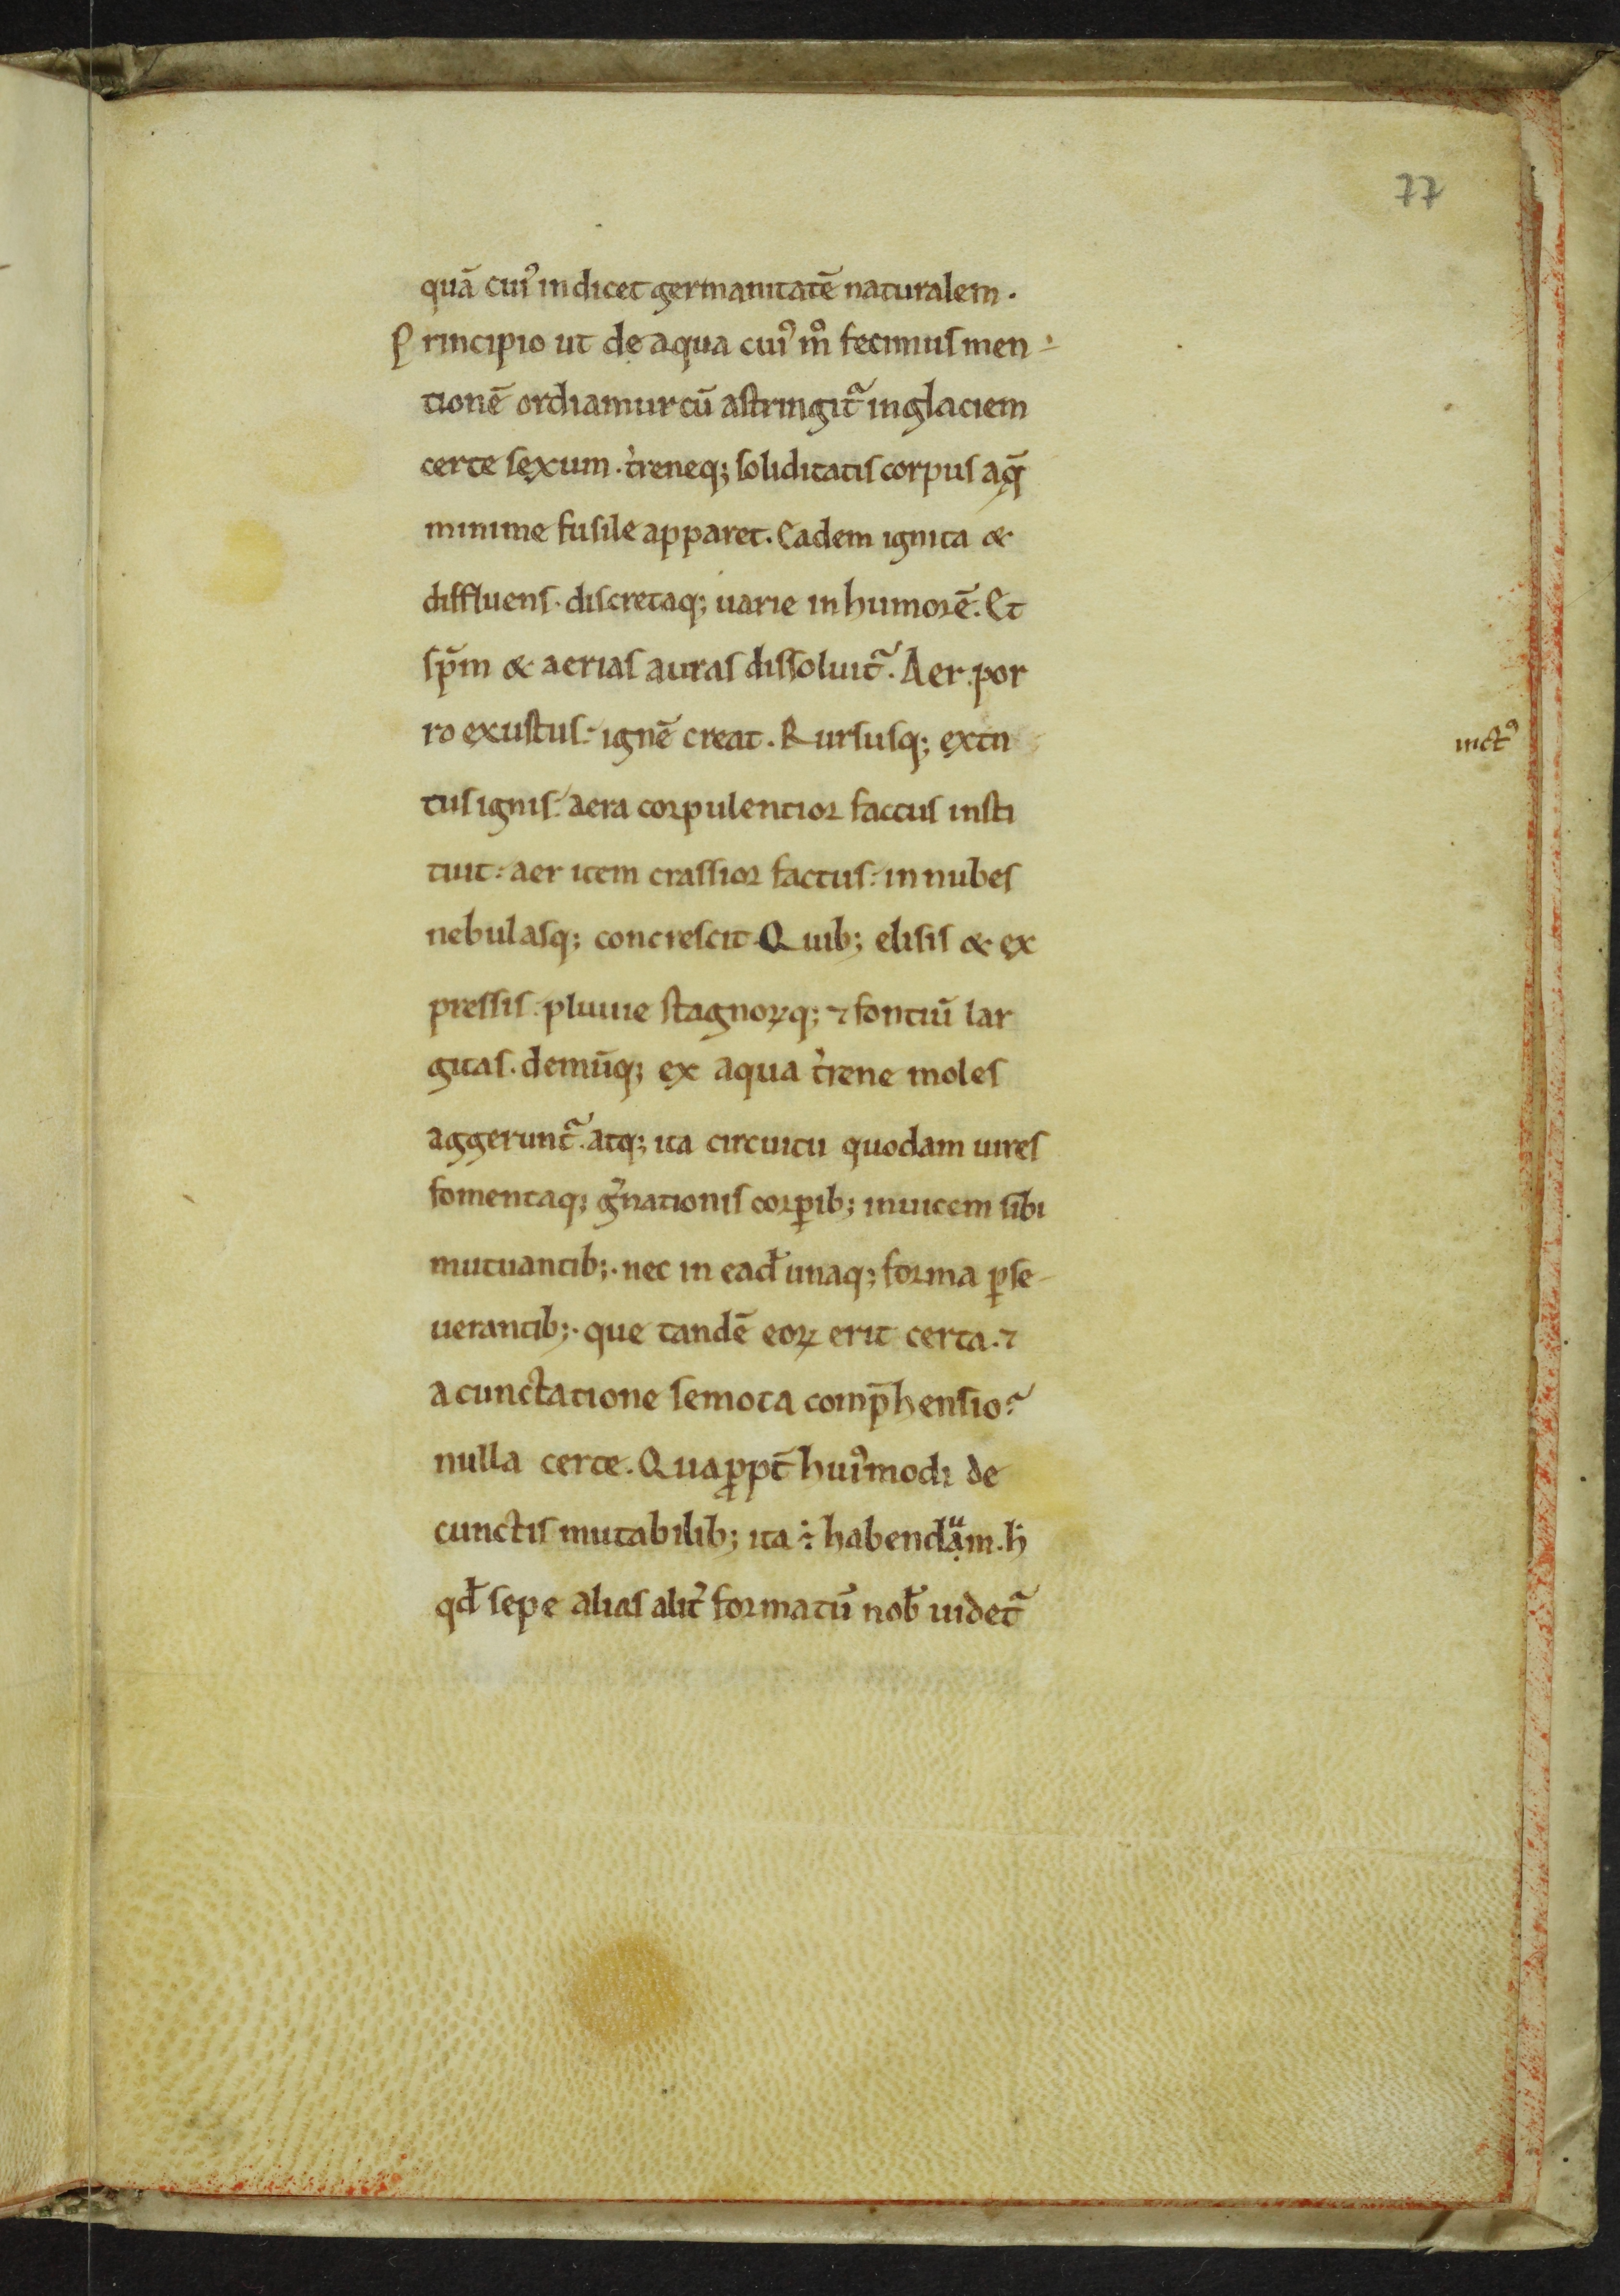 77
quā cuiꝰ indicet germanitatē naturalem.
Principio ut de aqua cuiꝰ m̊ fecimus men-
tionē ordiamur cū astringit᷑ in glaciem
certe sexum. t̓reneq; soliditatis corpus aq̄
minime fusile apparet. Eadem ignita &
diffluens. discretaq; uarie in humorē. Et
sp̄m & aerias auras dissoluit᷑. Aer por
ro exustus ignē creat. Rursusq; extin
inctꝰ
tus ignis aera corpulentior factus insti
tuit aer item crassior factus in nubes
nebulasq; concrescit. Quib; elisis & ex
pressis pluuie stagnoꝝq; ⁊ fontiū lar
gitas. demūq; ex aqua t̓rene moles
aggerunt᷑. atq; ita circuitu quodam uires
fomentaq; g̓nationis corꝑib; inuicem sibi
mutuantib;. nec in ead̄ unaq; forma ꝑse-
uerantib;. que tandē eoꝝ erit certa. ⁊
a cunctatione semota comp̄hensio?
nulla certe. Quaꝓpt̄ huiꝰmodi de
cunctis mutabilib; ita ÷ habendạᵘm. h̄
qd̄ sepe alias alit̓ formatū nob̄ uidet᷑